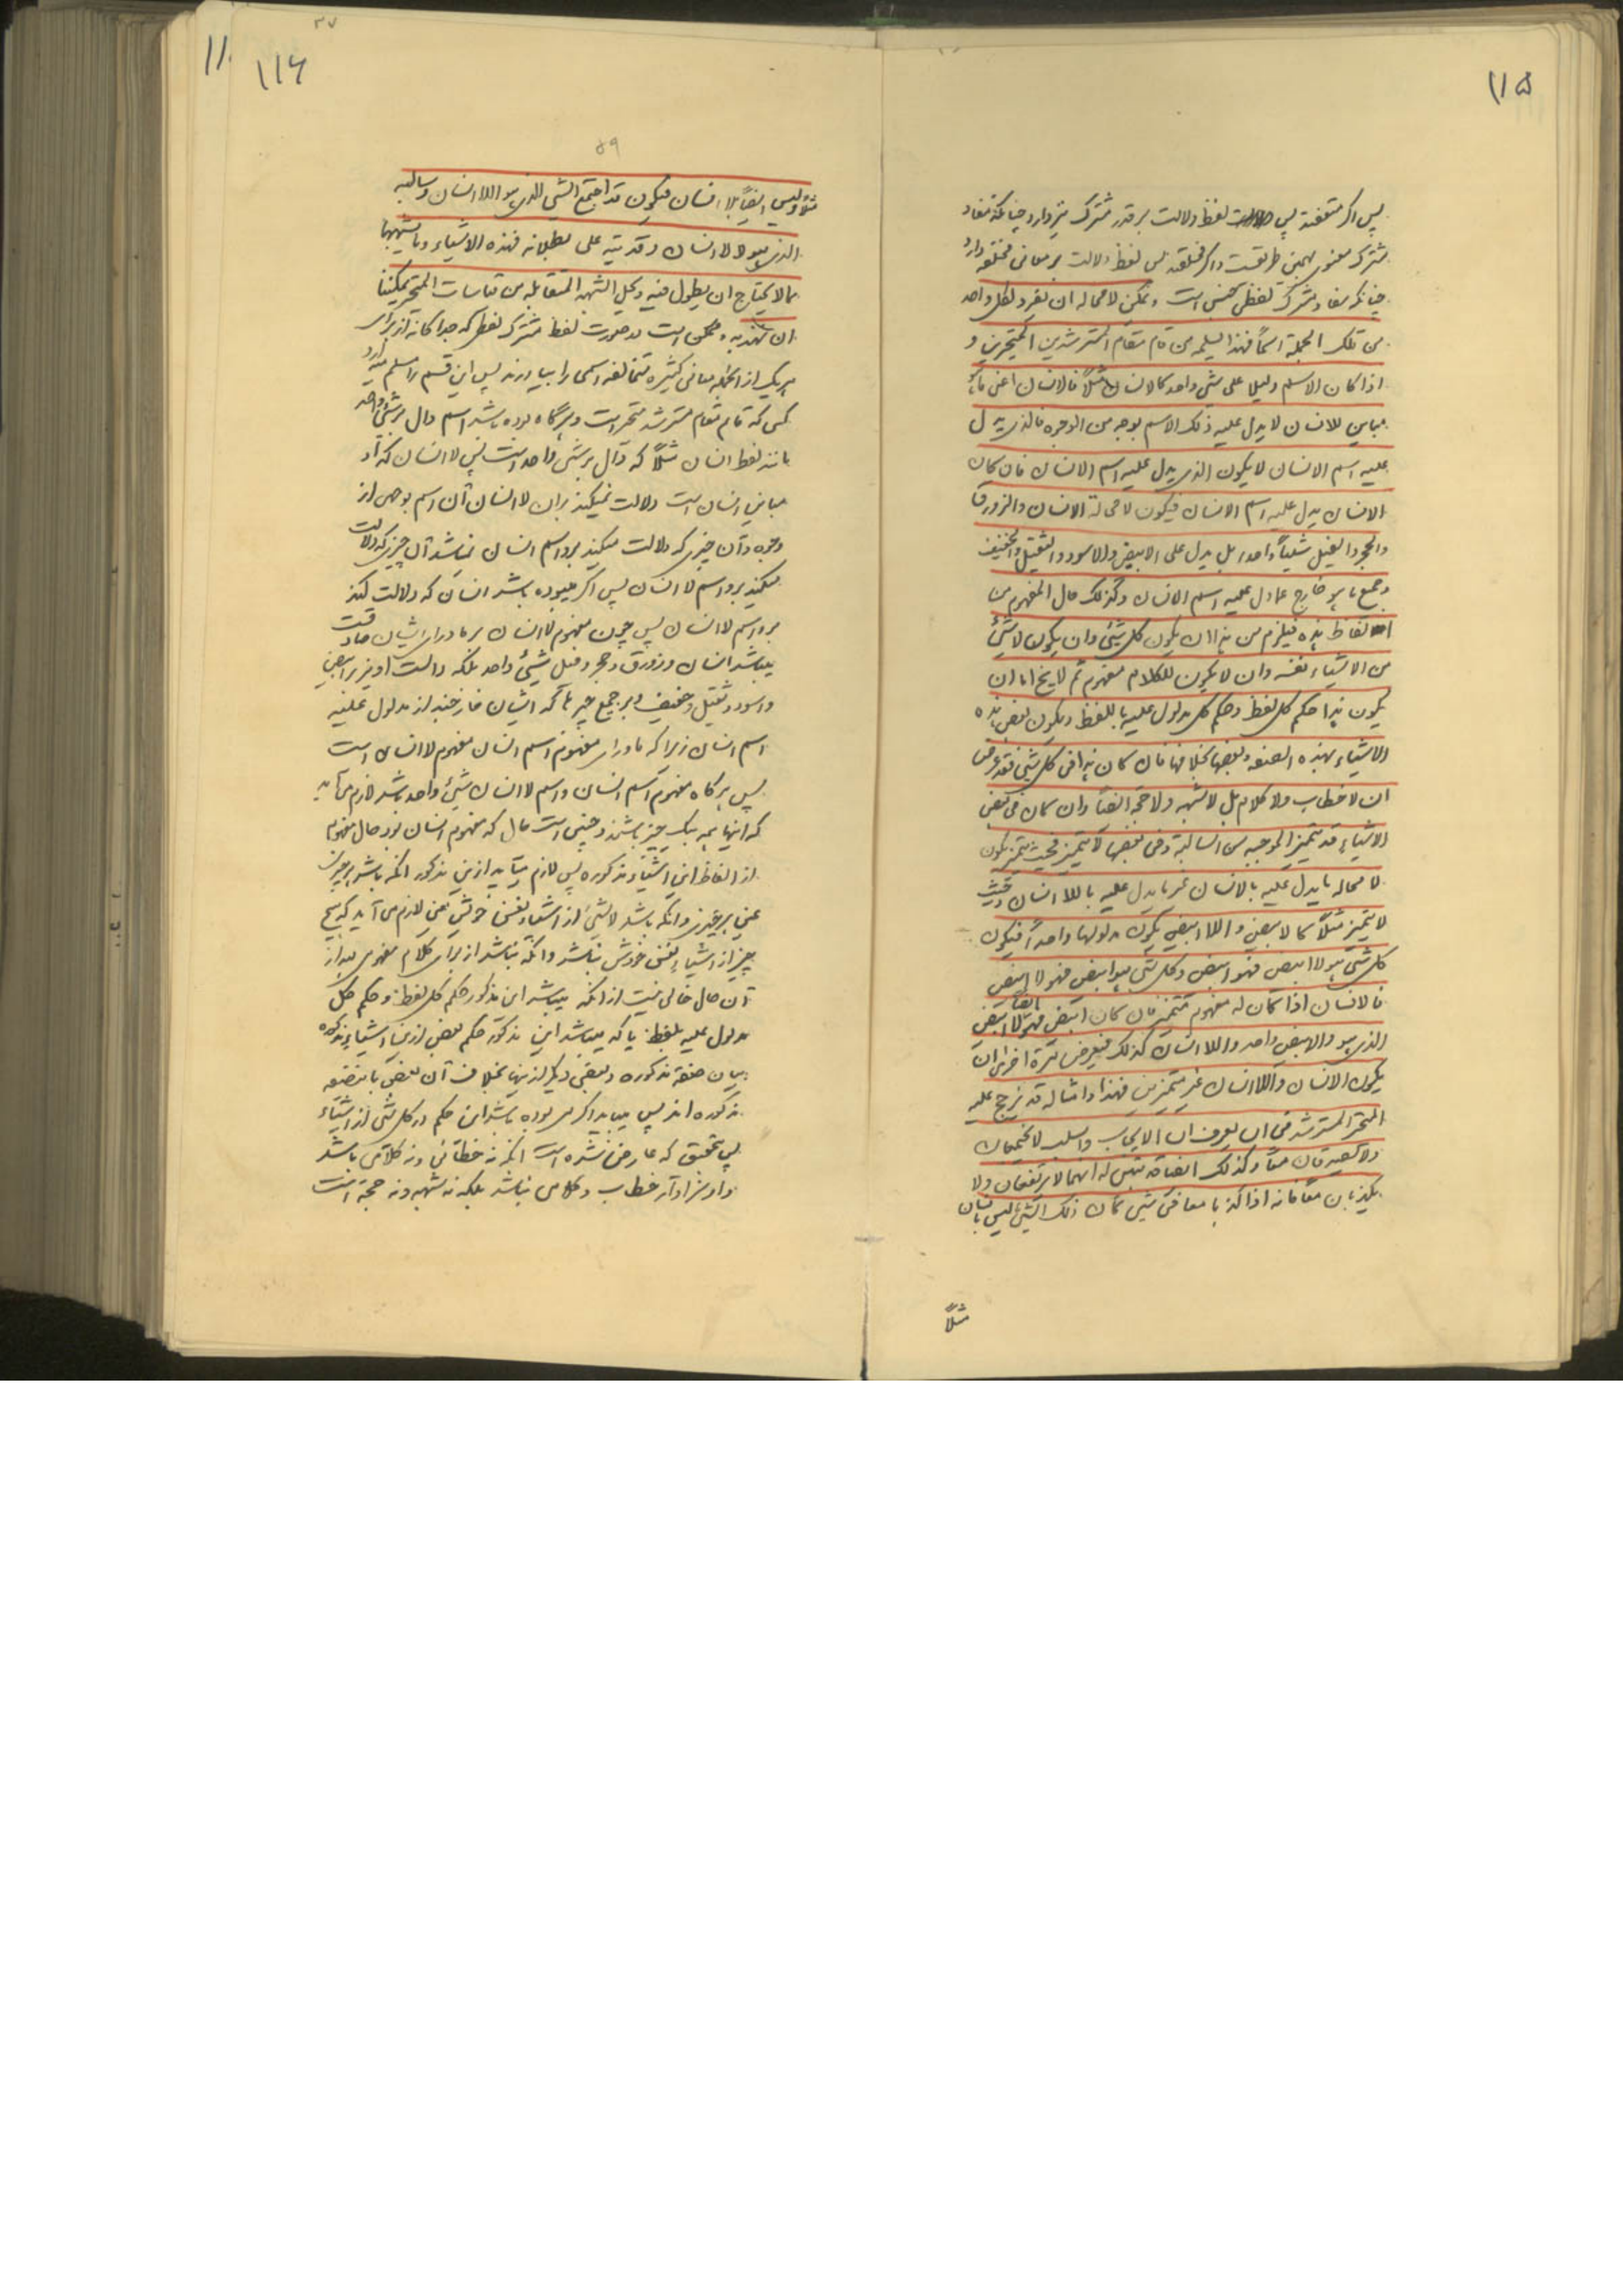 ۱۱۵
پس اگر متفقند پس لفظ دلالت بر قدر مشترک نیز دارد چنانکه مفاد
مشترک معنوی بهمین طریقست و اگر مختلفند پس لفظ دلالت بر معانی مختلفه دارد
چنانکه مفاد مشترک لفظی همین است و یمکن لا محاله ان یفرد لکل واحد
من تلک الجملة اسماً فهذا یسلمه من قام مقام المسترشدین المتحیرین و
اذا کان الاسم دلیلا علی شئ واحد کالانسان مثلاً فالانسان اعنی ما هو
مباین للانسان لا یدل علیه ذلک الاسم بوجه من الوجوه فالذی یدل
علیه اسم الانسان لا یکون الذی یدل علیه اسم الانسان فان کان
الانسان یدل علیه اسم الانسان فیکون لا محالة الانسان والزورق
والحجر والفیل شیئاً واحدا بل یدل علی الابیض والاسود والثقیل والخفیف
و جمیع ما هو خارج عما دل علیه اسم الانسان وکذلک حال المفهوم من
الالفاظ هذه فیلزم من هذا ان یکون کل شئ وان یکون لا شئ
من الاشیاء نفسه وان لا یکون للکلام مفهوم ثم لا یخ اما ان
یکون هذا حکم کل لفظ وحکم کل مدلول علیه باللفظ ویکون بعض هذه
الاشیاء بهذه الصفة وبعضها بخلافها فان کان هذا فی کل شئ فقد عرض
ان لا خطاب ولا کلام بل لا شبهه ولا حجة ایضاً وان کان فی بعض
الاشیاء قد یتمیز الموجبه من السالبة وفی بعضها لا یتمیز فحیث یتمیز یکون
لا محاله ما یدل علیه بالانسان غیر ما یدل علیه باللاانسان وحیث
لا یتمیز مثلاً کالابیض واللاابیض یکون مدلولهما واحداً فیکون
کل شئ هو لا ابیض فهو ابیض وکل شئ هو ابیض فهو لا ابیض
فالانسان اذا کان له مفهوم متمیز فان کان ابیض فهو ایضاً لا ابیض
الذی هو والابیض واحد واللاانسان کذلک فیعرض مرة اخری ان
یکون الانسان واللاانسان غیر متمیزین فهذا وامثاله قد یزیح علیه
المتحیر المسترشد فی ان یعرف ان الایجاب والسلب لا یجتمعان
ولا یصدقان معاً وکذلک ایضاً قد تبین له انهما لا یرتفعان ولا
یکذبان معاً فانه اذا کذبا معا فی شئ کان ذلک الشئ لیس بانسان
مثلاً
۱۱۶
۱۱۰
۳۷
۵۹
مثلاً ولیس ایضاً بلا انسان فیکون قد اجتمع الشئ الذی هو اللاانسان وسالبه
الذی هو لا لاانسان وقد نبه علی بطلانه فهذه الاشیاء وما یشبهها
مما لا یحتاج ان یطول فیه وبحل الشبهه المتقابله من قیاسات المتحیر یمکننا
ان نهدیه و ممکن است در صورت لفظ مشترک لفظی که جداگانه از برای
هر یک از آنجمله معانی کثیره متخالفه اسمی را بیاورند پس این قسم را مسلم میدارد
کسی که قایم مقام مسترشد متحیر است و هرگاه بوده باشد اسم دال بر شئ واحد
مانند لفظ انسان مثلاً که دال بر شئ واحد است پس لا انسان که آن
مباین انسان است دلالت نمیکند بر آن لا انسان آن اسم بوجهی از
وجوه و آن چیزیکه دلالت میکند بر او اسم انسان نباشد آن چیزیکه دلالت
میکند بر او اسم لا انسان پس اگر میبوده باشد انسان که دلالت کند
بر او اسم لا انسان پس چون مفهوم لا انسان بر ماورای ایشان صادقست
میباشد انسان و زورق و حجر و فیل شئ واحد بلکه دالست او نیز بر ابیض
و اسود و ثقیل و خفیف و بر جمیع چیرهآ که ایشان خارجند از مدلول علیه
اسم انسان زیرا که ماورای مفهوم اسم انسان مفهوم لا انسان است
پس هرگاه مفهوم اسم انسان و اسم لا انسان شئ واحد باشد لازم می آید
که اینها همه یک چیز باشند و چنین است حال که مفهوم انسان بود حال مفهوم
از الفاظ این اشیاء مذکوره پس لازم میآید ازین مذکور آنکه باشد هر چیزی
عین هر چیزی و آنکه باشد لا شئ از اشیاء نفس خودش یعنی لازم می آید که هیچ
چیز از اشیاء نفس خودش نباشد و آنکه نباشد از برای کلام مفهومی بعد از
آن حال خالی نیست از آنکه میباشد این مذکور حکم کل لفظ و حکم کل
مدلول علیه بلفظ یا که میباشد این مذکور حکم بعضی از این اشیاء مذکوره
بیان صفة مذکوره و بعضی دیگر از اینها بخلاف آن بعضی باینصفه
مذکوره اند پس میباید اگر می بوده باشد این حکم در کل شئ از اشیاء
پس تحقیق که عارض شده است آنکه نه خطابی و نه کلامی باشد
و او سزاوار خطاب و کلامی نباشد بلکه نه شبهه و نه حجة است